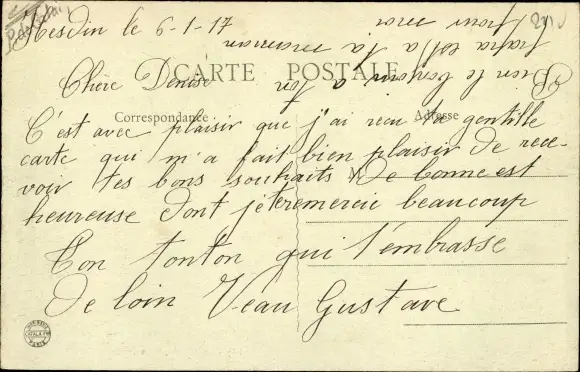 Hesdin le 6-1-17
CARTE POSTALE
Chère Denise
Correspondance
Adresse
C'est avec plaisir que j'ai recu ta gentille
carte qui m'a fait bien plaisir de rece-
voir tes bons souhaits de bonne est
heureuse dont je te remercie beaucoup
Ton tonton qui t'embrasse
de loin Veau Gustave
Bien le bonjour a ton
papa est a ta maman
pour moi